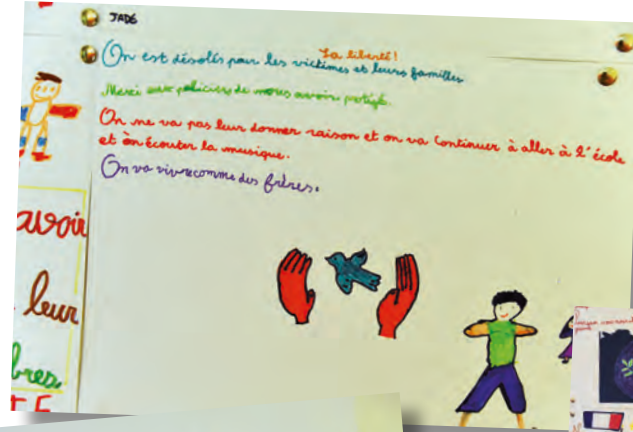 JADE
La liberté!
On est désolés pour les victimes et leurs familles.
Merci aux policiers de nous avoir protégé.
On ne va pas leur donner raison et on va continuer à aller à l'école
et on écouter la musique.
On va vivre comme des frères.
avoir
leur
bres.